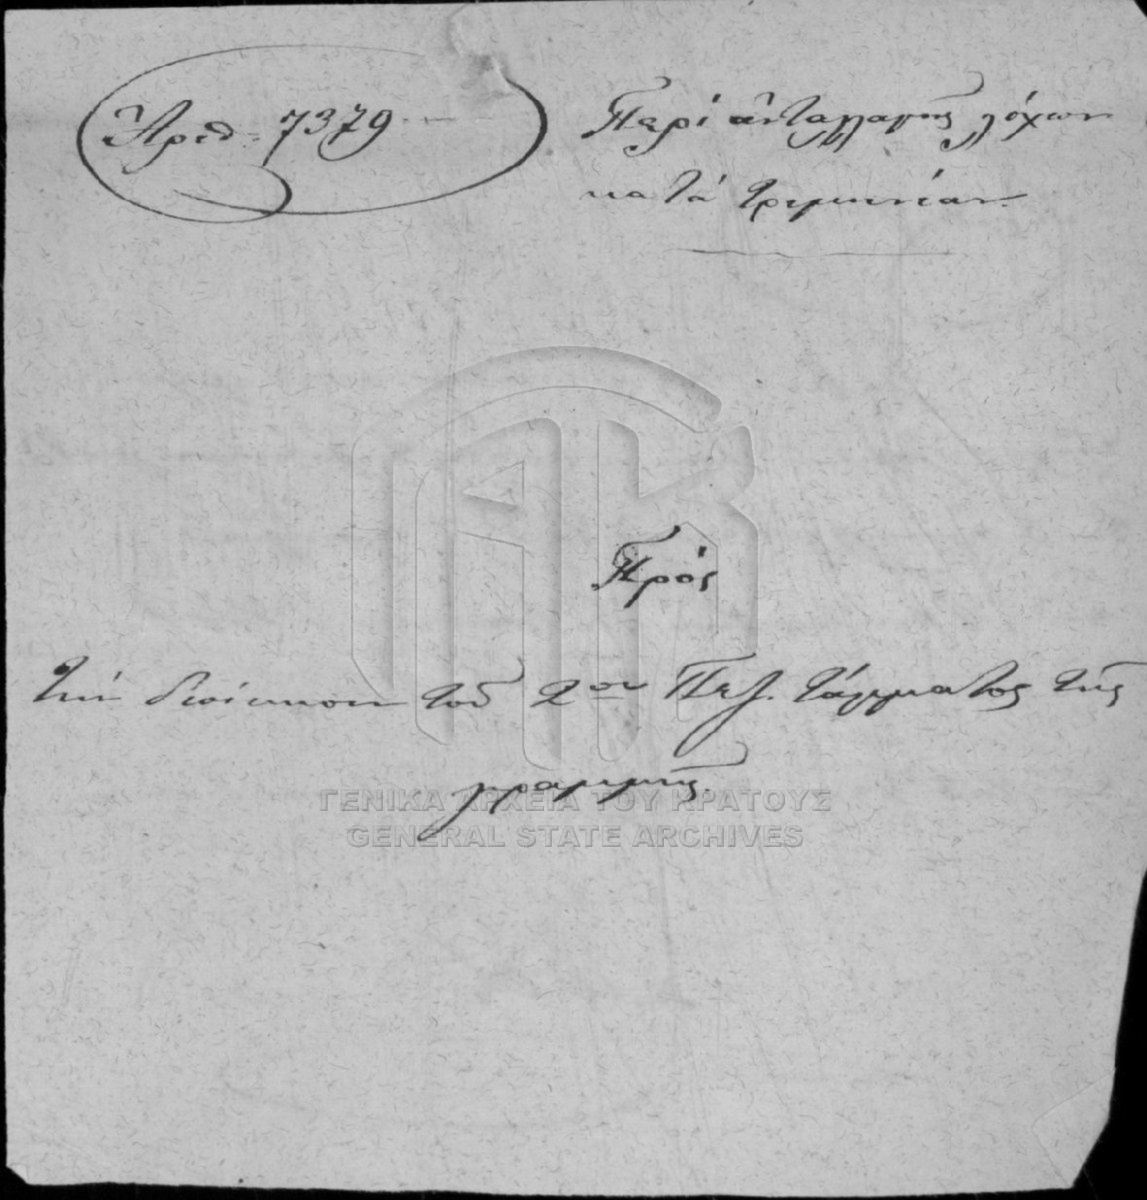 Ἀριθ. 7379
Περί ἀνταλλαγῆς λόχων
κατά τριμηνίαν.
Πρός
τήν διοίκησιν τοῦ 2ου Πεζ. τάγματος τῆς
γραμμῆς.
ΓΕΝΙΚΑ ΑΡΧΕΙΑ ΤΟΥ ΚΡΑΤΟΥΣ
GENERAL STATE ARCHIVES